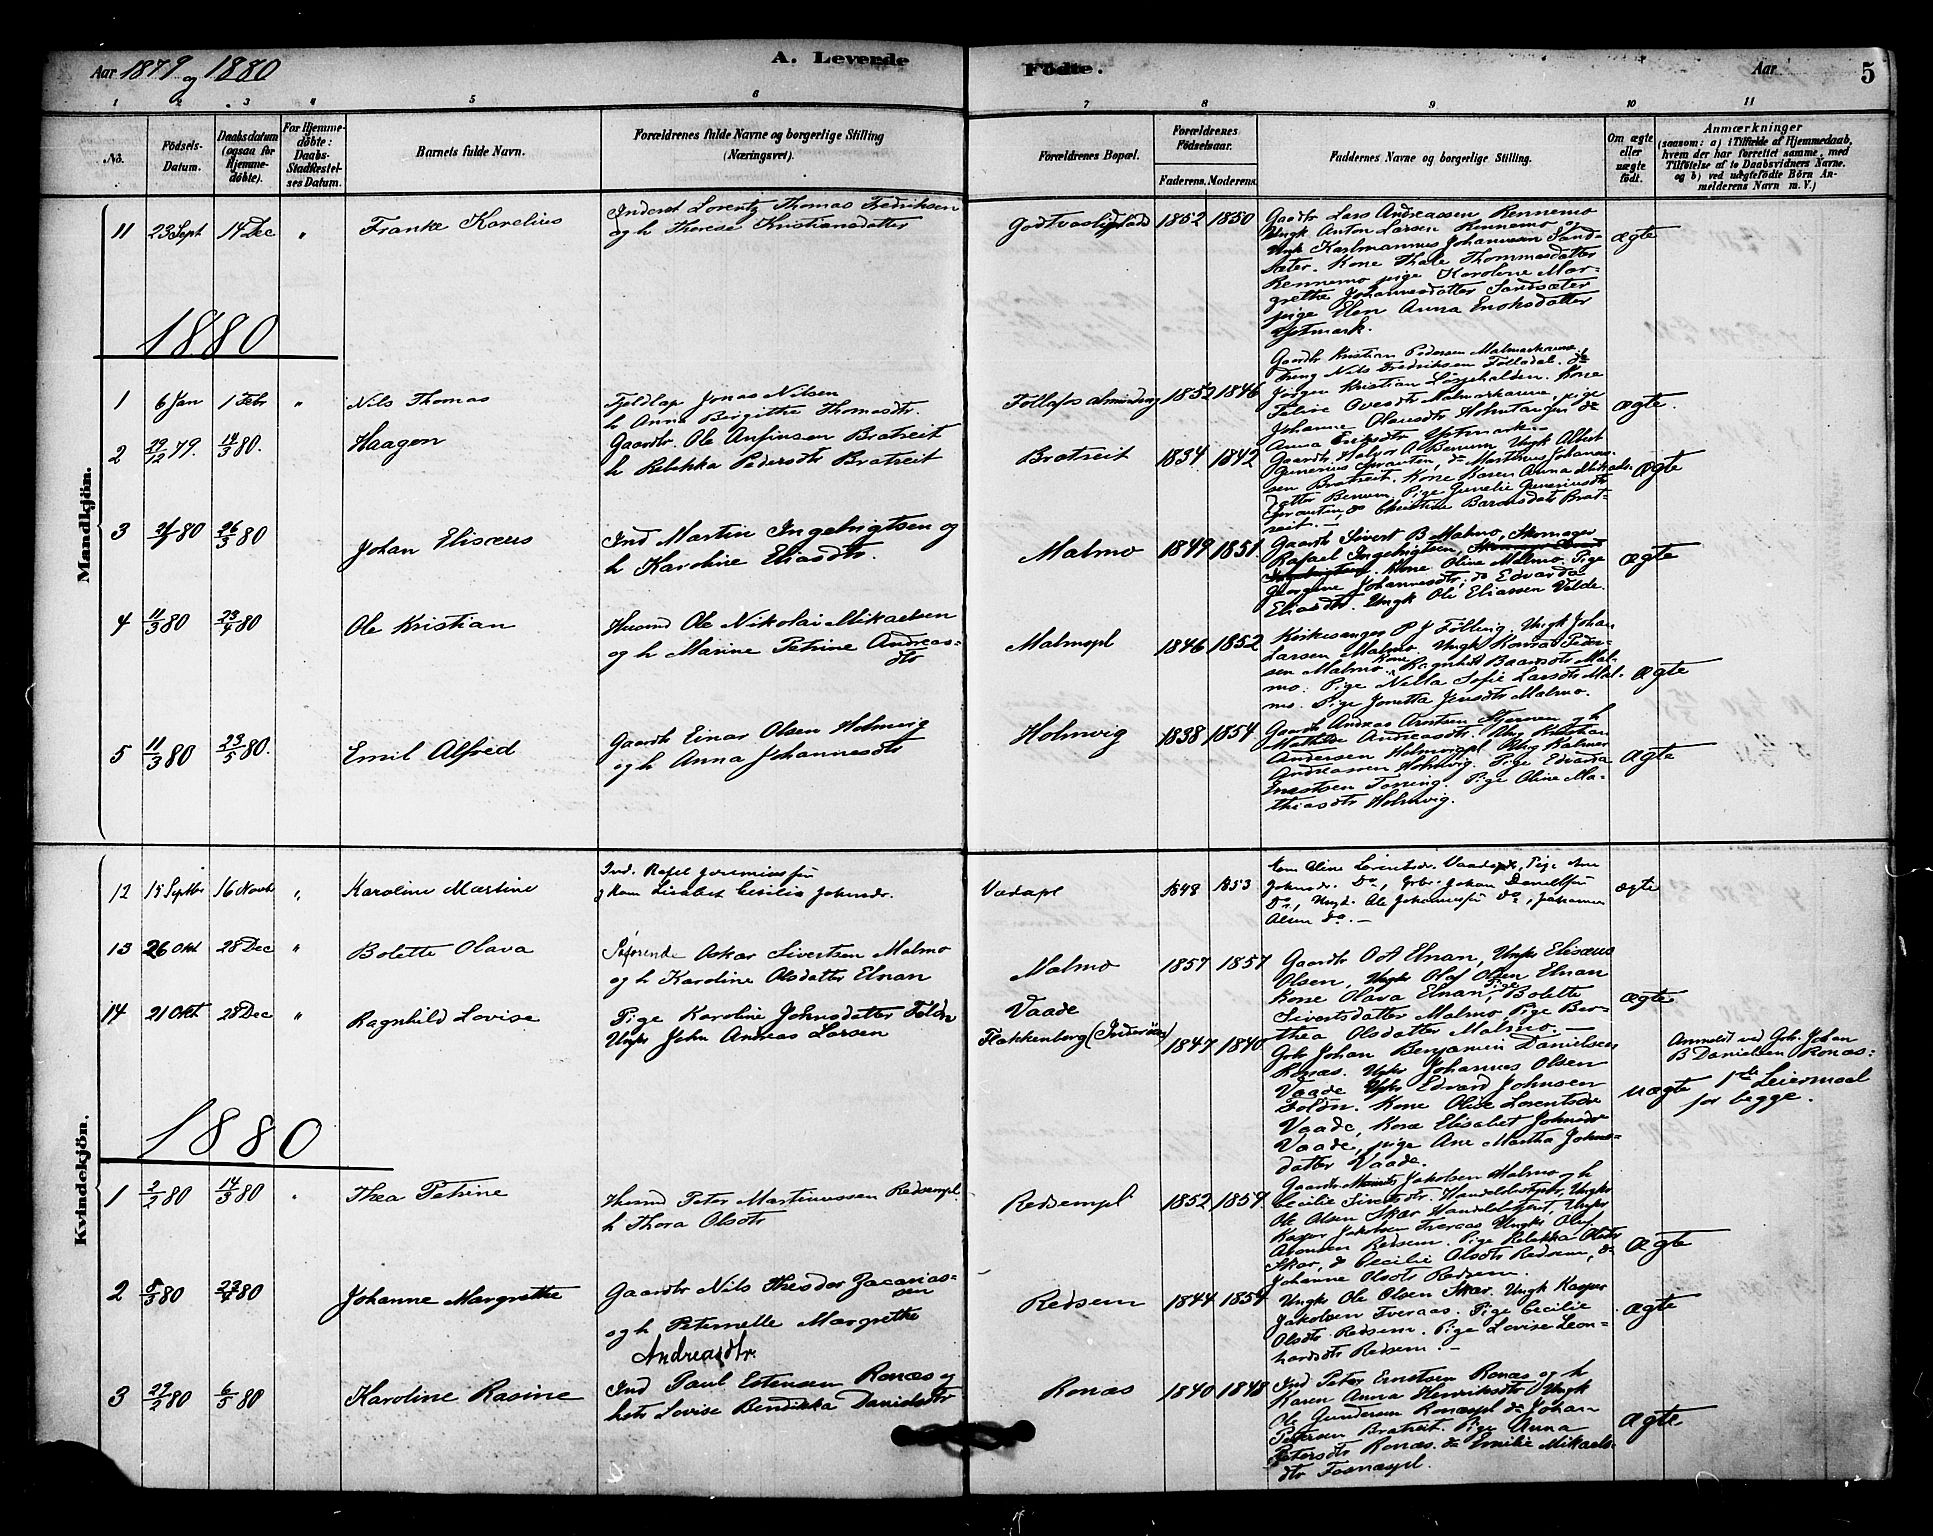 Aar 1879 og 1880
A. Levende
Födte.
Aar
5
1 2 3 4 5 6 7 8 9 10 11
No.
Födsels-Datum.
Daabsdatum (ogsaa for Hjemme-döbte).
For Hjemme-döbte: Daabs-Stadfæstel-ses Datum.
Barnets fulde Navn.
Forældrenes fulde Navne og borgerlige Stilling (Næringsvei).
Forældrenes Bopæl.
Forældrenes Födselsaar.
Faderens. Moderens.
Faddernes Navne og borgerlige Stilling.
Om ægte eller uægte födt.
Anmærkninger (saasom: a) i Tilfælde af Hjemmedaab, hvem der har forrettet samme, med Tilföielse af to Daabsvidners Navne. og b) ved uægtefödte Börn An-melderens Navn m. V.)
Mandkjön.
11 23 Sept 14 Dec " Franke Karelius
Inderst Lorentz Thomas Fredriksen
og h Therese Kristiansdatter
1852 1850
Gaardbr Lars Andreassen Rennemo
Ungk Anton Larsen Rennemo
Ungk Karlmannus Johannesen Sand-
sæter. Kone Thale Thommasdatter
Rennemo pige Karoline Mar-
grethe Johannesdatter Sandsæter
pige Elen Anna Enoksdatter
Ystmark.
ægte
1880
1 6 Jan 1 Febr " Nils Thomas
Fjeldlap Jonas Nilsen
h Anna Birgithe Thomasdtr.
1852 1846
Gaardbr Kristian Pedersen
Nils Fredriksen Folladal. do
Jörgen Kristian Kone
Ovesdtr pige
Johanne Olausdtr Holmtangen do
Anna Eriksdtr Ystmark
ægte.
2 29/12 79. 14/3 80. Haagen
Gaardbr. Ole Anfinsen Bratreit
h Rebekka Pedersdtr Bratreit
Bratreit 1834 1842
Gaardbr. Halvor A Benum Ungk Albert
do Martinus Johannes-
sen Bratreit. Kone Karen Anna
datter Benum. Pige Gunelie Guneriusdtr
do Christine Bardsdatr Brat-
reit.
ægte
3 80 26/3 80 Johan Elisæus
Ind Martin Ingebrigtsen og
h Karoline Eliasdtr.
Malmo 1849 1851.
Gaardb Sivert B Malmo, Skomager
Rafael Ingebrigtsen,
Kone Oline Malmo. Pige
Georgine Johannesdtr, do Edvarda
Eliasdtr. Ungk Ole Eliassen Velde.
ægte
4 11/3 80 23/4 80 Ole Kristian
Husmd Ole Nikolai Mikaelsen
og h Marine Petrine Andreas-
dtr
Malmopl 1846 1852
Kirkesanger P J Fölling. Ungk Johan
Larsen Malmo. Ungk Konrad Peder-
sen Malmo. Kone Ragnhild Baardsdtr Mal-
mo. Pige Nella Sofie Larsdtr Mal-
mo. Pige Jonetta Jensdtr Malmo.
ægte
5 11/3 80 23/5 80. Emil Alfred
Gaardb Einar Olsen Holmvig
og h Anna Johannesdtr
Holmvig 1838 1854
Gaardb Andreas Arntsen h
Mathilde Andreasdtr. Ung Kristian
Andersen Holmvigpl Ung Kalmer
Andreassen Holmvig. Pige Edvarda
Toring. Pige Oline Ma-
thiasdtr Holmvig.
ægte
Kvindekjön.
12 15 Septbr 16 Novb " Karoline Martine
Ind. Rafel
g Kom Lisabet Cecilia Johnsdr.
Vadapl 1848 1853
Kom Oline Lorentsdr. Vaadapl, Pige Ane
Johnsdr. Do, Grbr. Johan
Do, Ungd. Ole do, Johannes
Olsen do. —
ægte
13 26 Okt 28 Dec " Bolette Olava
Söfarende Oskar Sivertsen Malmo
og h Karoline Olsdatter Elnan
Malmo 1857 1857
Gaardb O A Elnan, Ungk Elisæus
Olsen, Ungk Olaf Olsen Elnan
Kone Olava Elnan, Pige Bolette
Sivertsdatter Malmo Pige Ber-
thea Olsdatter Malmo. —
ægte
14 21 Okt 28 Dec " Ragnhild Lovise
Pige Karoline Johnsdatter Foldn
Ungk John Andreas Larsen
Vaade
Flakkenborg (Inderöen) 1847 1840
Grb Johan Benjamin Danielsen
Ronæs. Ungk Johannes Olsen
Vaade Ungk Edvard Johnsen
Foldn. Kone Oline Lorentsdr
Vaade, Kone Elisabet Johnsdr
Vaade, pige Ane Martha Johns-
datter Vaade.
uægte
Anmeldt ved Grb. Johan
B Danielsen Ronæs-
1ste Leiermaal
for begge.
1880
1 2/2 80 14/3 80 " Thea Petrine
Husmd Peter Martinussen Redsempl.
h Thora Olsdtr
Redsempl 1852 1857.
Gaardbr Jakobsen Malmo h
Cecilie Sivertsdtr. Ungk
Ole Olsen Skar Ungk
Kasper Jakobsen Tveraas Ungk Oluf
Redsem. Pige Rebekka Olsdtr
Skar, do Cecilie Olsdtr Redsem, do
Johanne Olsdtr Redsem.
ægte
2 5/3 80 23/4 80 Johanne Margrethe
Gaardbr Nils Theodor Zacarias-
sen
og h Peternelle Margrethe
Andreasdtr.
Redsem 1844 1854
Ungk Ole Olsen Skar. Ungk Kasper
Jakobsen Tveraas. Pige Cecilie
Olsdtr Redsem. Pige Lovise Leon-
hardsdtr Redsem. —
ægte
3 29/2 80 6/5 80 Karoline Rasine
Ind Paul Estensen Ronæs og
hstr Lovise Bendikka Danielsdtr
Ronæs 1840 1848
Ind Peter Ernstsen Ronæs og h
Karen Anna Henriksdtr Ungk
Ole Gundersen Ronæspl do Johan
Petersen Bratreit. Pige Anna
Petersdtr Ronæs. do Emilie Mikaels-
dtr Fosnæspl.
ægte